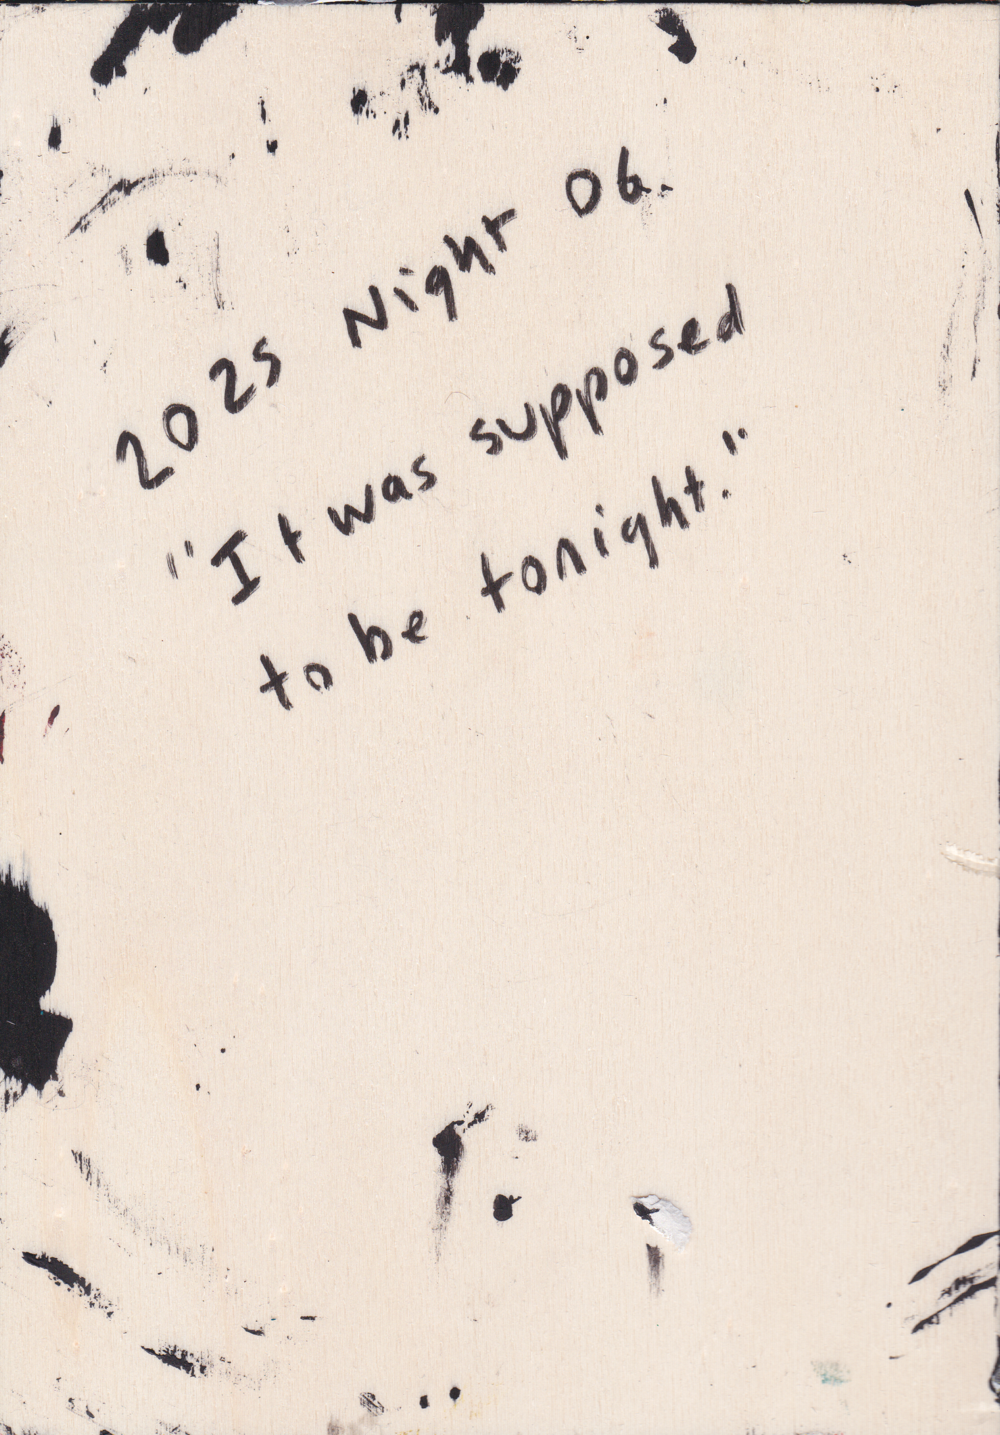 2025 Night 06.
"It was supposed
to be tonight."